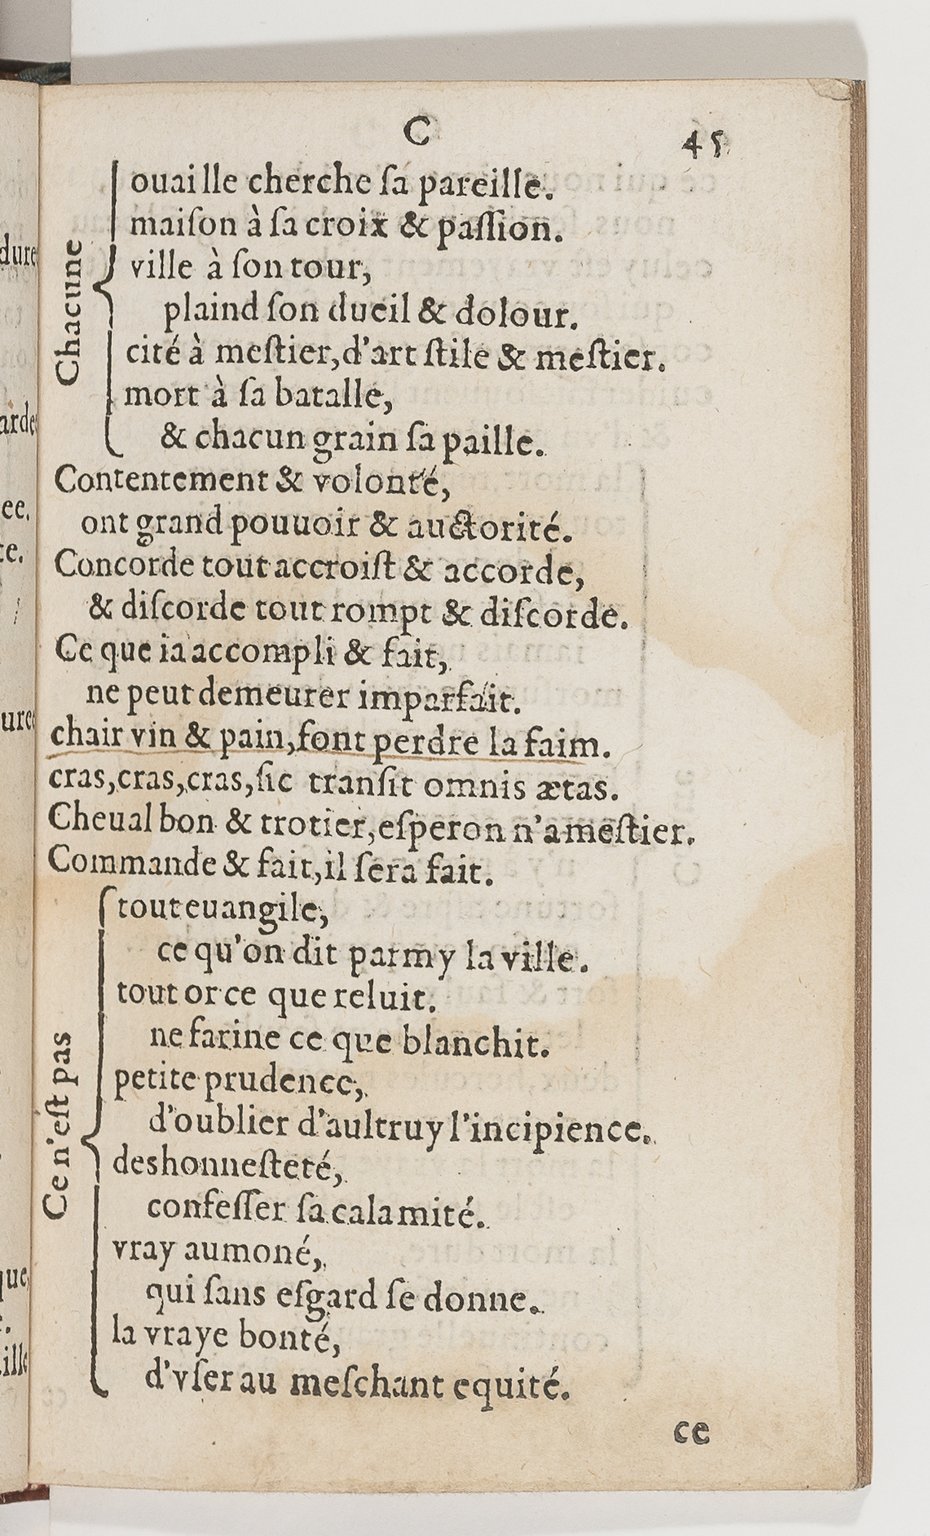 C
45
Chacune
ouaille cherche ſa pareille.
maiſon à ſa croix & paſſion.
ville à ſon tour,
plaind ſon dueil & dolour.
cité à meſtier, d'art ſtile & meſtier.
mort à ſa batalle,
& chacun grain ſa paille.
Contentement & volonté,
ont grand pouuoir & auctorité.
Concorde tout accroiſt & accorde,
& diſcorde tout rompt & diſcorde.
Ce que ia accompli & fait,
ne peut demeurer imparfait.
chair vin & pain, font perdre la faim.
cras, cras, cras, ſic tranſit omnis ætas.
Cheual bon & trotier, eſperon n'a meſtier.
Commande & fait, il ſera fait.
Ce n'eſt pas
tout euangile,
ce qu'on dit parmy la ville.
tout or ce que reluit.
ne farine ce que blanchit.
petite prudence,
d'oublier d'aultruy l'incipience.
deshonneſteté,
confeſſer ſa calamité.
vray aumoné,
qui ſans eſgard ſe donne.
la vraye bonté,
d'vſer au meſchant equité.
ce